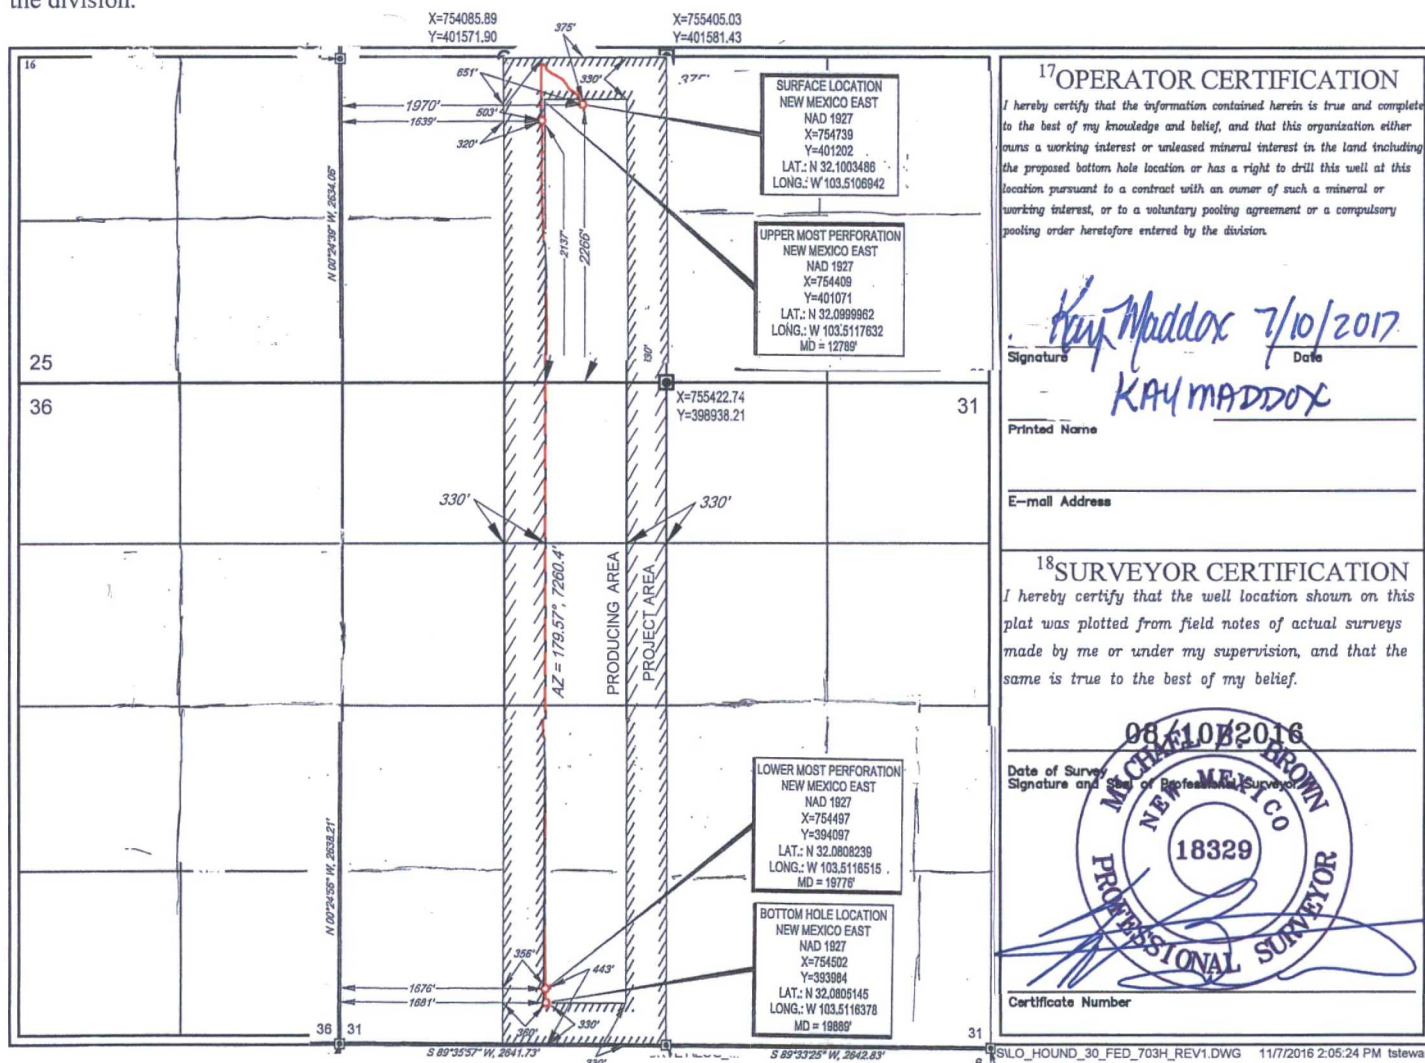 the division.
X=754085.89
Y=401571.90
375'
X=755405.03
Y=401581.43
16
651'
330'
1970'
503'
1639'
320'
N 00°24'39" W, 2634.06'
2137'
2266'
SURFACE LOCATION
NEW MEXICO EAST
NAD 1927
X=754739
Y=401202
LAT.: N 32.1003486
LONG.: W 103.5106942
UPPER MOST PERFORATION
NEW MEXICO EAST
NAD 1927
X=754409
Y=401071
LAT.: N 32.0999962
LONG.: W 103.5117632
MD = 12789'
25
36
X=755422.74
Y=398938.21
31
330'
330'
AZ = 179.57°, 7260.4'
PRODUCING AREA
PROJECT AREA
N 00°24'56" W, 2638.21'
LOWER MOST PERFORATION
NEW MEXICO EAST
NAD 1927
X=754497
Y=394097
LAT.: N 32.0808239
LONG.: W 103.5116515
MD = 19776'
BOTTOM HOLE LOCATION
NEW MEXICO EAST
NAD 1927
X=754502
Y=393984
LAT.: N 32.0805145
LONG.: W 103.5116378
MD = 19889'
356'
443'
1676'
1681'
360'
330'
36 31
31
S 89°35'57" W, 2641.73'
330'
S 89°33'25" W, 2642.83'
17 OPERATOR CERTIFICATION
I hereby certify that the information contained herein is true and complete
to the best of my knowledge and belief, and that this organization either
owns a working interest or unleased mineral interest in the land including
the proposed bottom hole location or has a right to drill this well at this
location pursuant to a contract with an owner of such a mineral or
working interest, or to a voluntary pooling agreement or a compulsory
pooling order heretofore entered by the division.
Kay Maddox 7/10/2017
Signature Date
KAY MADDOX
Printed Name
E-mail Address
18 SURVEYOR CERTIFICATION
I hereby certify that the well location shown on this
plat was plotted from field notes of actual surveys
made by me or under my supervision, and that the
same is true to the best of my belief.
08/10/2016
Date of Survey
Signature and Seal of Professional Surveyor
MICHAEL B. BROWN
NEW MEXICO
18329
PROFESSIONAL SURVEYOR
Certificate Number
S:\LO_HOUND_30_FED_703H_REV1.DWG 11/7/2016 2:05:24 PM